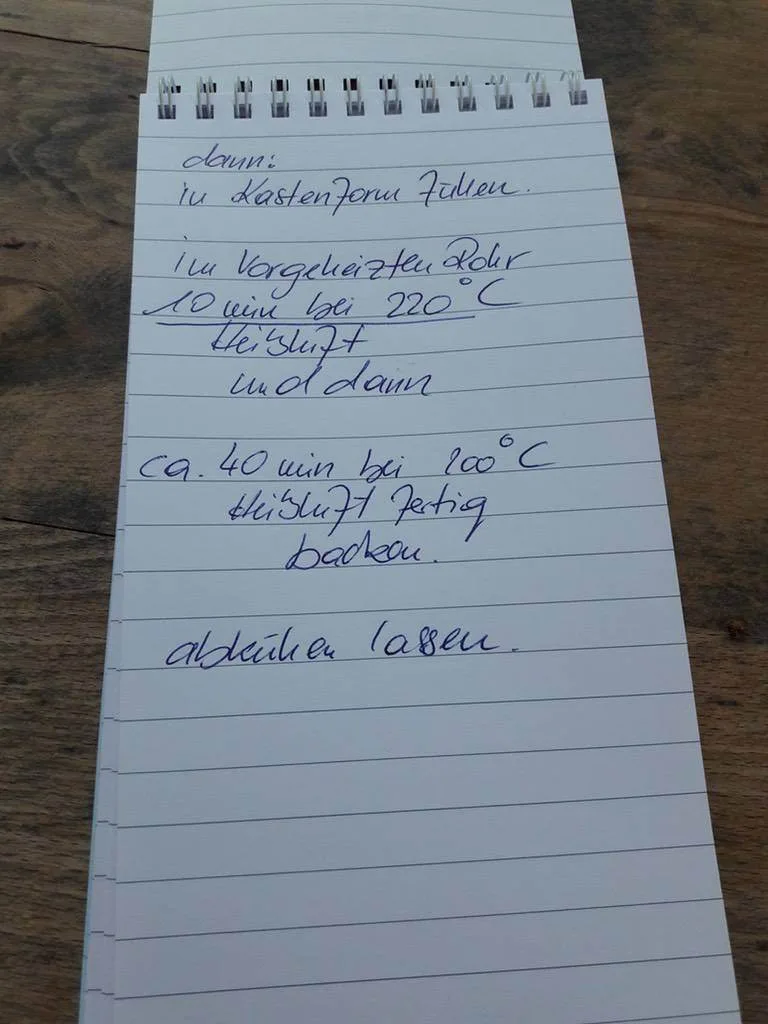 dann:
in Kastenform füllen.
im vorgeheizten Rohr
10 min bei 220°C
Heißluft
und dann
ca. 40 min bei 200°C
Heißluft fertig
backen.
abkühlen lassen.